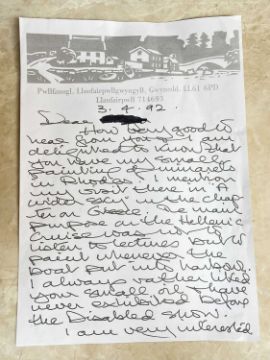 Pwllfanogl, Llanfairpwllgwyngyll, Gwynedd, LL61 6PD
Llanfairpwll 714693
3. 4. 92.
Dear
How very good to
hear from you. I am
delighted to know that
you have my small
painting of minarets
in Rhodes. I mention
my visit there in 'A
wider sky' in the chap
ter on Greece. The main
purpose on the Hellenic
Cruise was not to
listen to lectures but to
paint whenever the
boat put into harbour.
I always rather liked
your small oil I have
never exhibited before
the Disabled show.
I am very interested